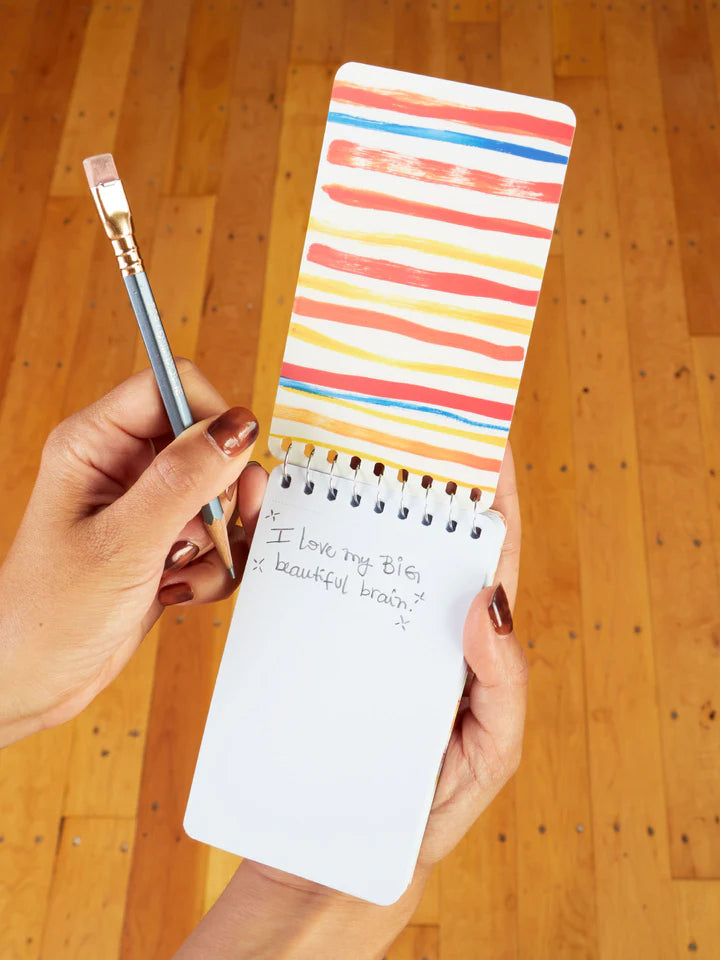 I love my BIG
beautiful brain.